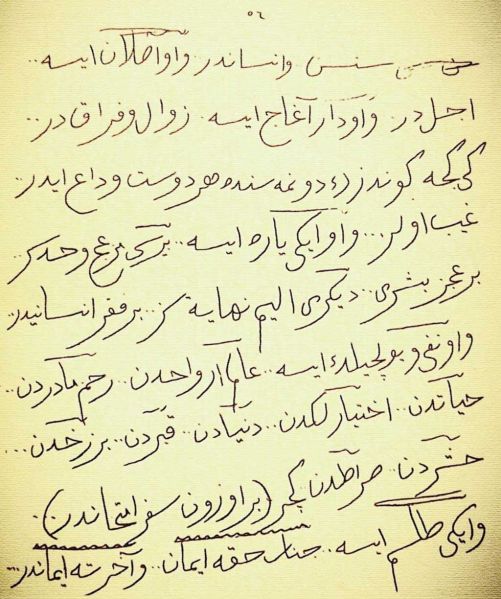 ٥٤
سنسن و انساندر و او آصلان ایسه..
اجل در و او دار آغاج ایسه. زوال و فراق در..
کی کجه کوندزك دونمه سنده هر دوست وداع ایدر.
غیب اولر... و او ایکی یاره ایسه.. بریسی وحدسز
بر عجز بشری.. دیکری الیم نهایة سز.. بر فقر انسانیدر
و او نفی و یولجیلك ایسه.. عالم ارواحدن.. رحم مادردن..
حیاتدن.. اختیارلکدن.. دنیادن.. قبردن.. برزخدن...
حشردن.. صراطدن کچر (بر اوزون سفر امتحاندر)..
و ایکی طلسم ایسه.. جناب حقه ایمان.. و آخرته ایماندر...